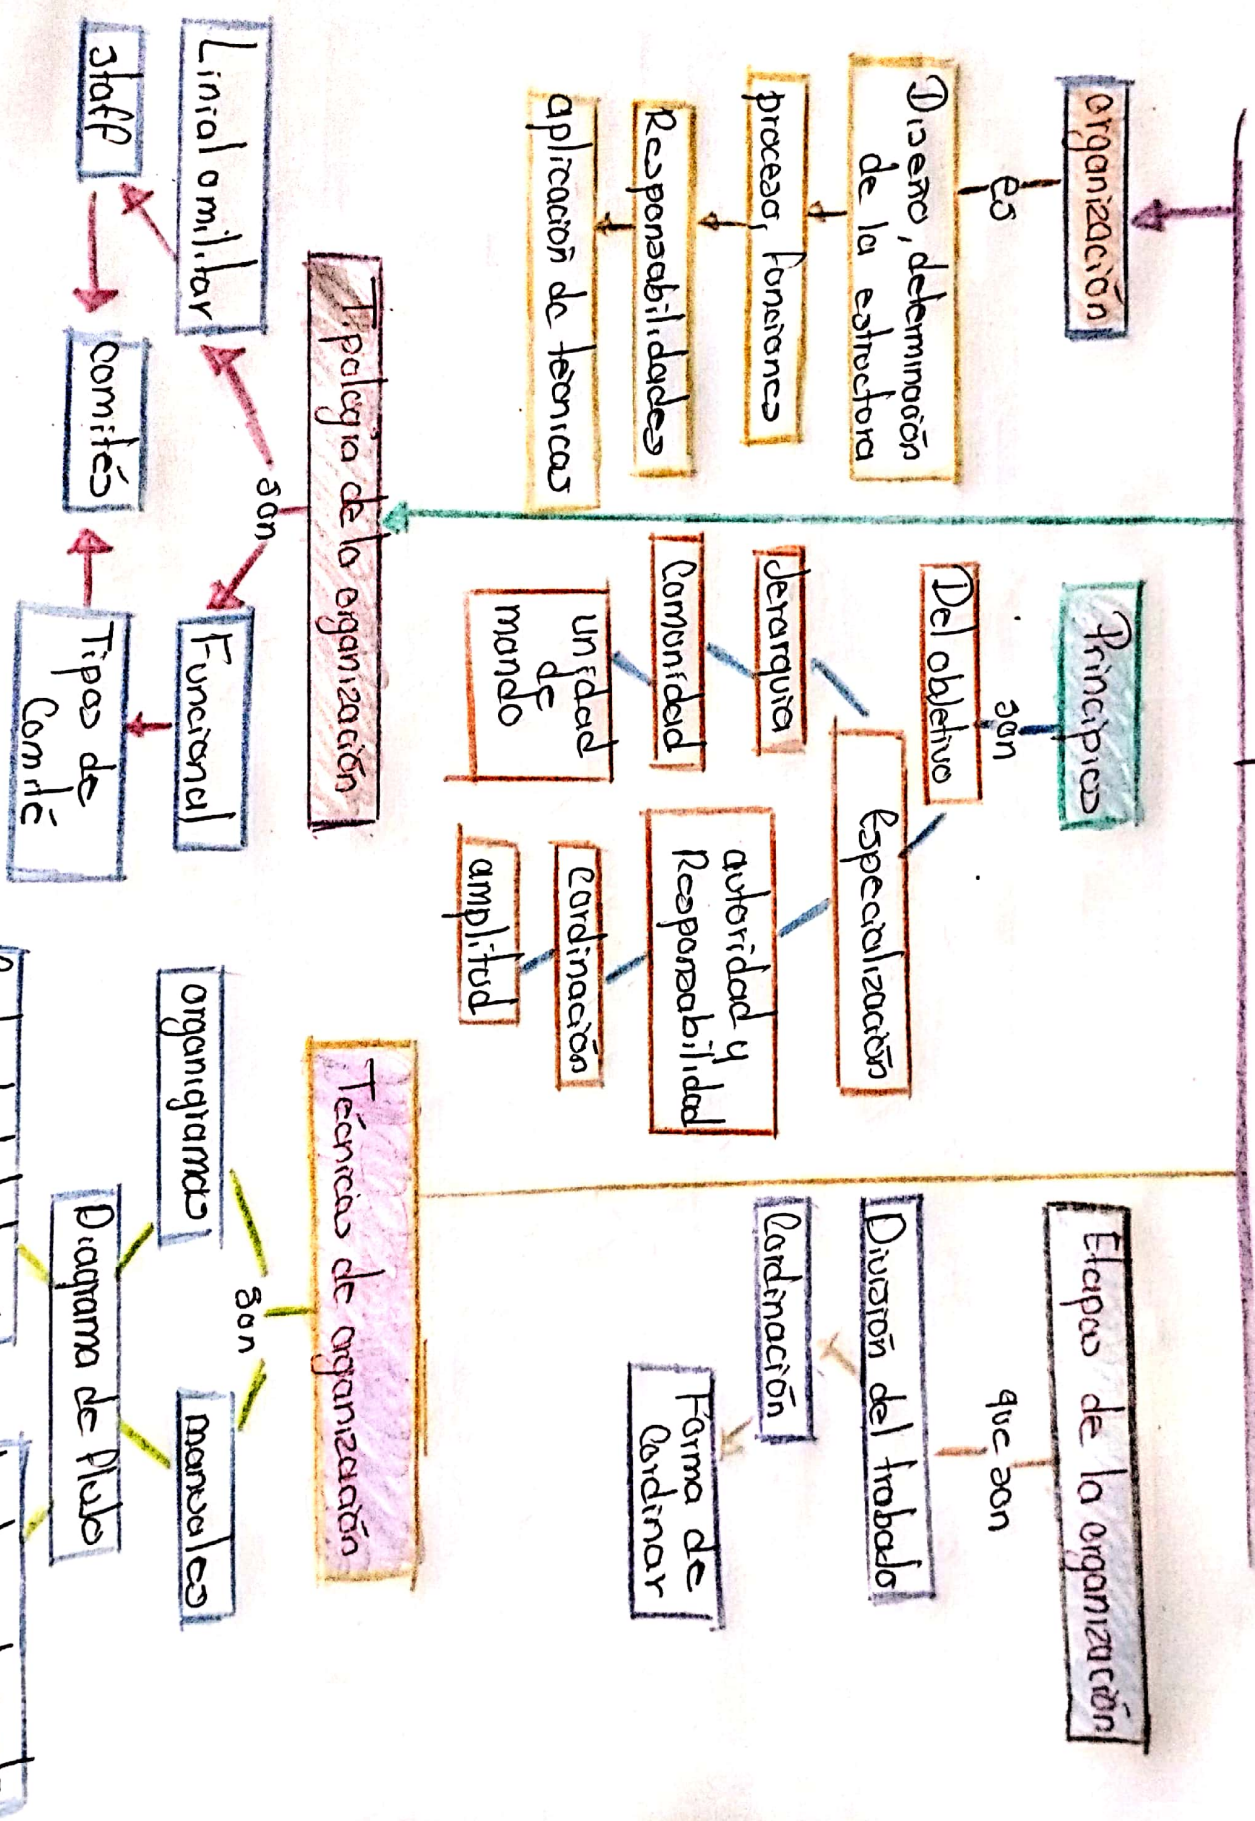 organización
es
Diseño, determinación
de la estructura
proceso, funciones
Responsabilidades
aplicación de técnicas
Principios
son
Del objetivo
Especialización
Jerarquia
Comonidad
unidad
de
mando
autoridad y
Responsabilidad
Cordinación
amplitud
Etapas de la organización
que son
División del trabado
Cordinación
Forma de
Cordinar
Tipologia de la organización
son
Linial o militar
Staff
Comités
Funcional
Tipos de
Comité
Técnicas de organización
son
organigramas
manuales
Diagrama de flujo